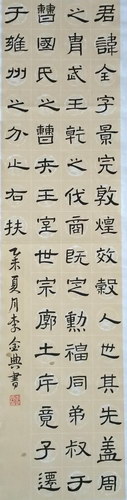 君諱全字景完敦煌效穀人也其先蓋周
之胄武王乾之伐商既定勲福同弟叔于
曹國氏之曹夾王室世宗廓土斥竟子遷
于雍州之分止右扶
乙未夏月李金典書